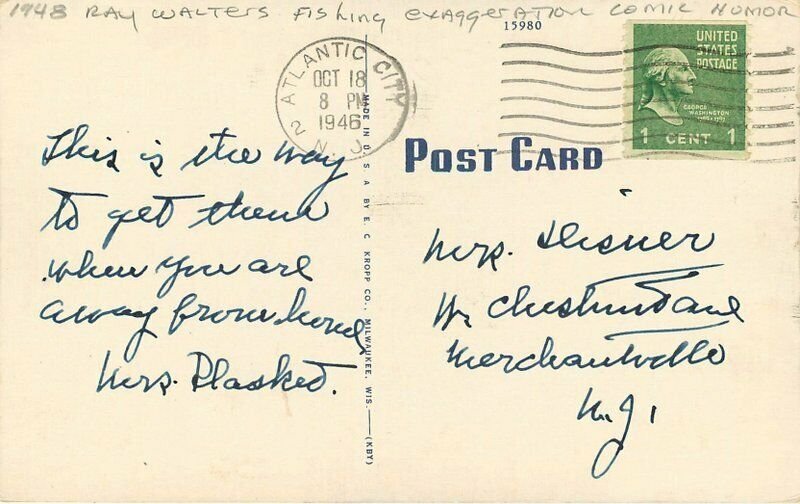 1948 RAY WALTERS FISHING EXAGGERATION COMIC HUMOR
15980
ATLANTIC CITY
OCT 18
8 PM
1946
2 N. J.
UNITED
STATES
POSTAGE
GEORGE
WASHINGTON
1 CENT 1
POST CARD
MADE IN U. S. A. BY E. C. KROPP CO., MILWAUKEE, WIS. (KBY)
This is the way
to get them
when you are
away from home,
Mrs. Plasket.
Mrs.
W. Chestnut ave
Merchantville
N. J.